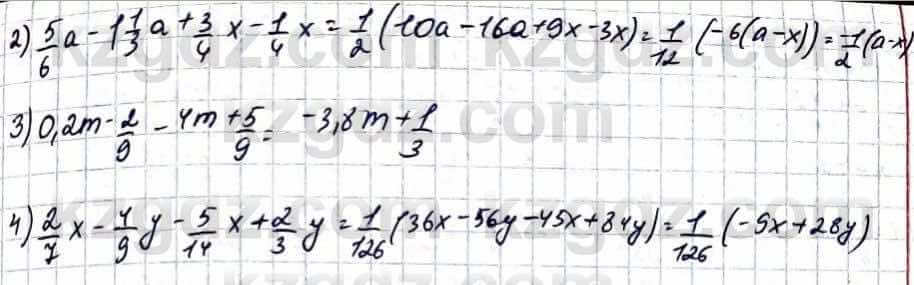 2) 5/6 a - 1 1/3 a + 3/4 x - 1/4 x = 1/2 (10a - 16a + 9x - 3x) = 1/12 (-6(a-x)) = 1/2 (a-x)
3) 0,2m - 2/9 - 4m + 5/9 = -3,8m + 1/3
4) 2/7 x - 4/9 y - 5/14 x + 2/3 y = 1/126 (36x - 56y - 45x + 84y) = 1/126 (-9x + 28y)